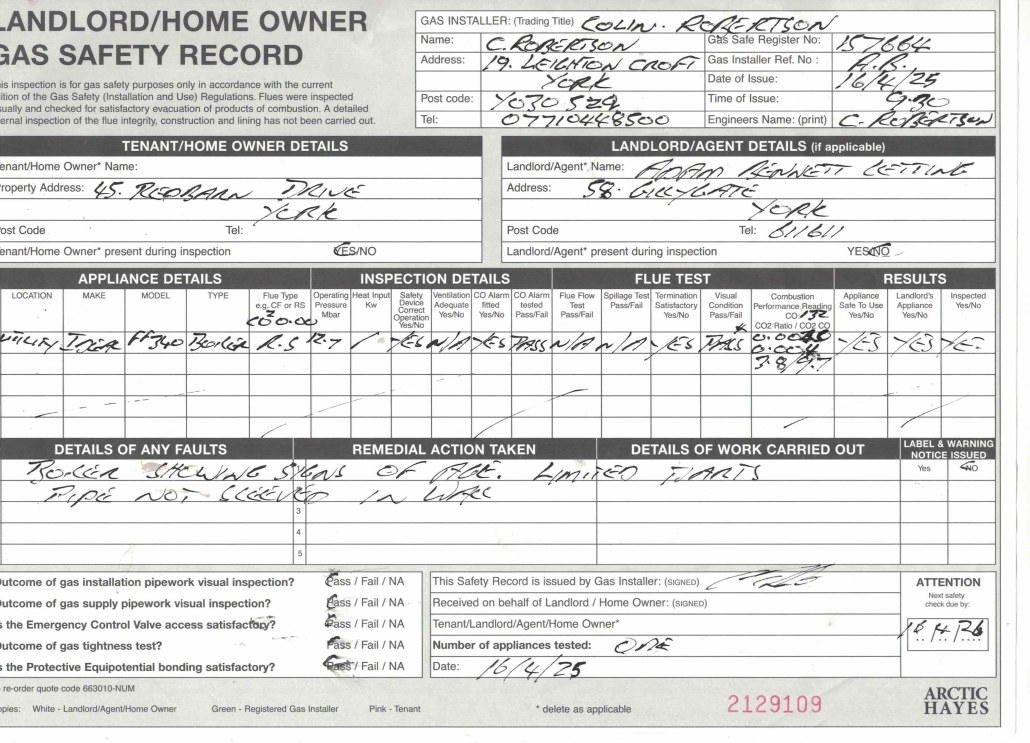 LANDLORD/HOME OWNER
GAS SAFETY RECORD
his inspection is for gas safety purposes only in accordance with the current
dition of the Gas Safety (Installation and Use) Regulations. Flues were inspected
sually and checked for satisfactory evacuation of products of combustion. A detailed
ternal inspection of the flue integrity, construction and lining has not been carried out.
GAS INSTALLER: (Trading Title) COLIN. ROBERTSON
Name: C. ROBERTSON Gas Safe Register No: 157664
Address: 19. LEIGHTON CROFT Gas Installer Ref. No : A.B.
YORK Date of Issue: 16/4/25
Post code: YO30 5 Time of Issue: 9.30
Tel: 07710448500 Engineers Name: (print) C. ROBERTSON
TENANT/HOME OWNER DETAILS
Tenant/Home Owner* Name:
Property Address: 45. REDBARN DRIVE
YORK
Post Code Tel:
Tenant/Home Owner* present during inspection YES/NO
LANDLORD/AGENT DETAILS (if applicable)
Landlord/Agent* Name: ADAM BENNETT LETTING
Address: 58. GILLYGATE
YORK
Post Code Tel: 611611
Landlord/Agent* present during inspection YES/NO
APPLIANCE DETAILS INSPECTION DETAILS FLUE TEST RESULTS
LOCATION MAKE MODEL TYPE Flue Type e.g. CF or RS Operating Pressure Mbar Heat Input Kw Safety Device Correct Operation Yes/No Ventilation Adequate Yes/No CO Alarm fitted Yes/No CO Alarm tested Pass/Fail Flue Flow Test Pass/Fail Spillage Test Pass/Fail Termination Satisfactory Yes/No Visual Condition Pass/Fail Combustion Performance Reading CO CO2 Ratio / CO2 CO Appliance Safe To Use Yes/No Landlord's Appliance Yes/No Inspected Yes/No
CO2 0.00 132
UTILITY IDEAL FF340 BOILER R.S 12.7 YES N/A YES PASS N/A N/A YES PASS YES YES YES
0.004
3.8/9.7
DETAILS OF ANY FAULTS REMEDIAL ACTION TAKEN DETAILS OF WORK CARRIED OUT LABEL & WARNING NOTICE ISSUED
BOILER SHOWING SIGNS OF AGE. LIMITED PARTS Yes NO
PIPE NOT SLEEVED IN WALL
3
4
5
Outcome of gas installation pipework visual inspection? Pass / Fail / NA
Outcome of gas supply pipework visual inspection? Pass / Fail / NA
Is the Emergency Control Valve access satisfactory? Pass / Fail / NA
Outcome of gas tightness test? Pass / Fail / NA
Is the Protective Equipotential bonding satisfactory? Pass / Fail / NA
This Safety Record is issued by Gas Installer: (SIGNED)
Received on behalf of Landlord / Home Owner: (SIGNED)
Tenant/Landlord/Agent/Home Owner*
Number of appliances tested: ONE
Date: 16/4/25
ATTENTION
Next safety
check due by:
16 4 26
re-order quote code 663010-NUM
opies: White - Landlord/Agent/Home Owner Green - Registered Gas Installer Pink - Tenant
* delete as applicable
2129109
ARCTIC
HAYES